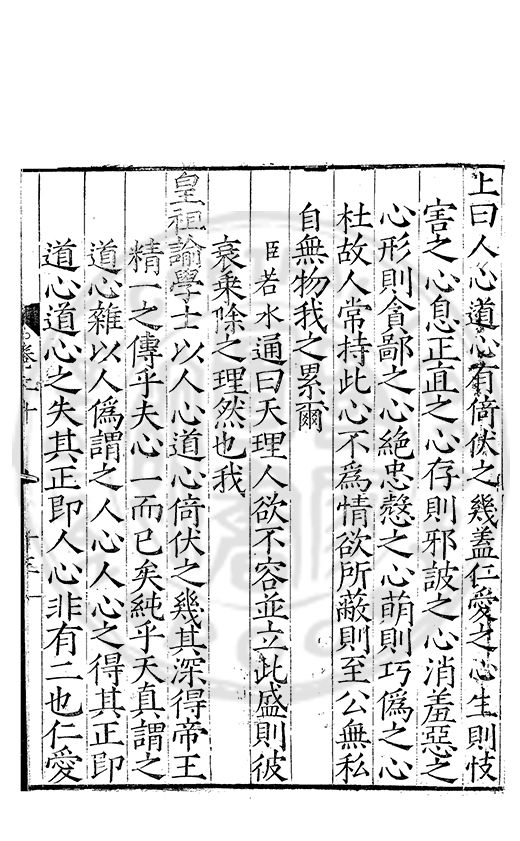 上曰人心道心有倚伏之幾盖仁愛之心生則忮
害之心息正直之心存則邪詖之心消羞惡之
心形則貪鄙之心絶忠慤之心萌則巧偽之心
杜故人常持此心不爲情欲所蔽則至公無私
自無物我之累爾
臣若水通曰天理人欲不容並立此盛則彼
衰乗除之理然也我
皇祖諭學士以人心道心倚伏之幾其深得帝王
精一之傳乎夫心一而已矣純乎天真謂之
道心雜以人僞謂之人心人心之得其正即
道心道心之失其正即人心非有二也仁愛